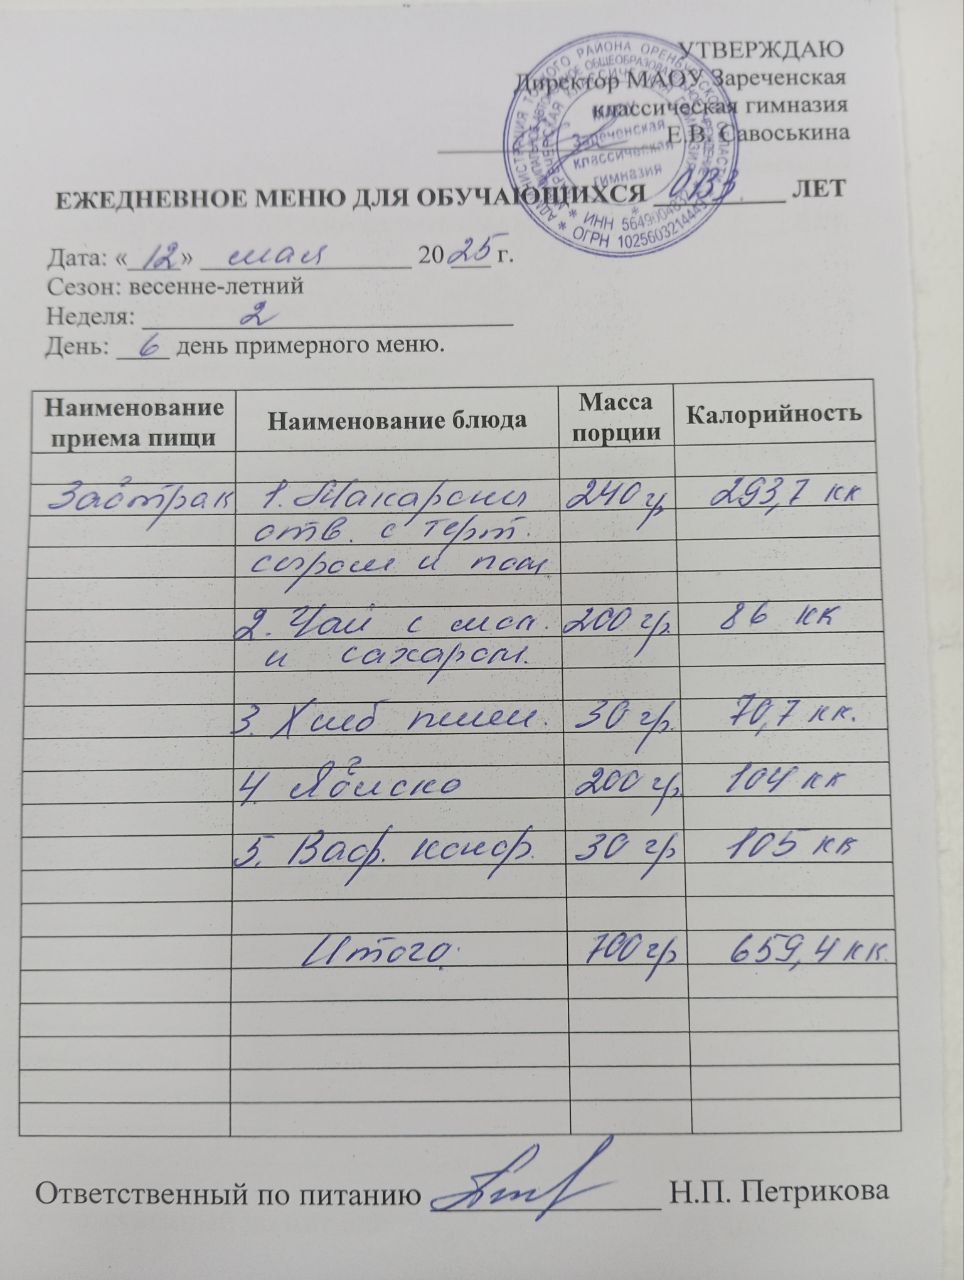 УТВЕРЖДАЮ
Директор МАОУ Зареченская
классическая гимназия
Е.В. Савоськина
МАОУ
Зареченская
классическая
гимназия
ОГРН 1025603214440
ЕЖЕДНЕВНОЕ МЕНЮ ДЛЯ ОБУЧАЮЩИХСЯ ОВЗ ЛЕТ
Дата: «12» мая 2025 г.
Сезон: весенне-летний
Неделя: 2
День: 6 день примерного меню.
Наименование приема пищи Наименование блюда Масса порции Калорийность
Завтрак 1. Макароны 240 гр 293,7 кк
отв. с терт.
сыром и пом
2. Чай с мол. 200 гр. 86 кк
и сахаром.
3. Хлеб пшен. 30 гр. 70,7 кк.
4. Яблоко 200 гр. 104 кк
5. Ваф. конф. 30 гр 105 кк
Итого: 700 гр 659,4 кк.
Ответственный по питанию Н.П. Петрикова